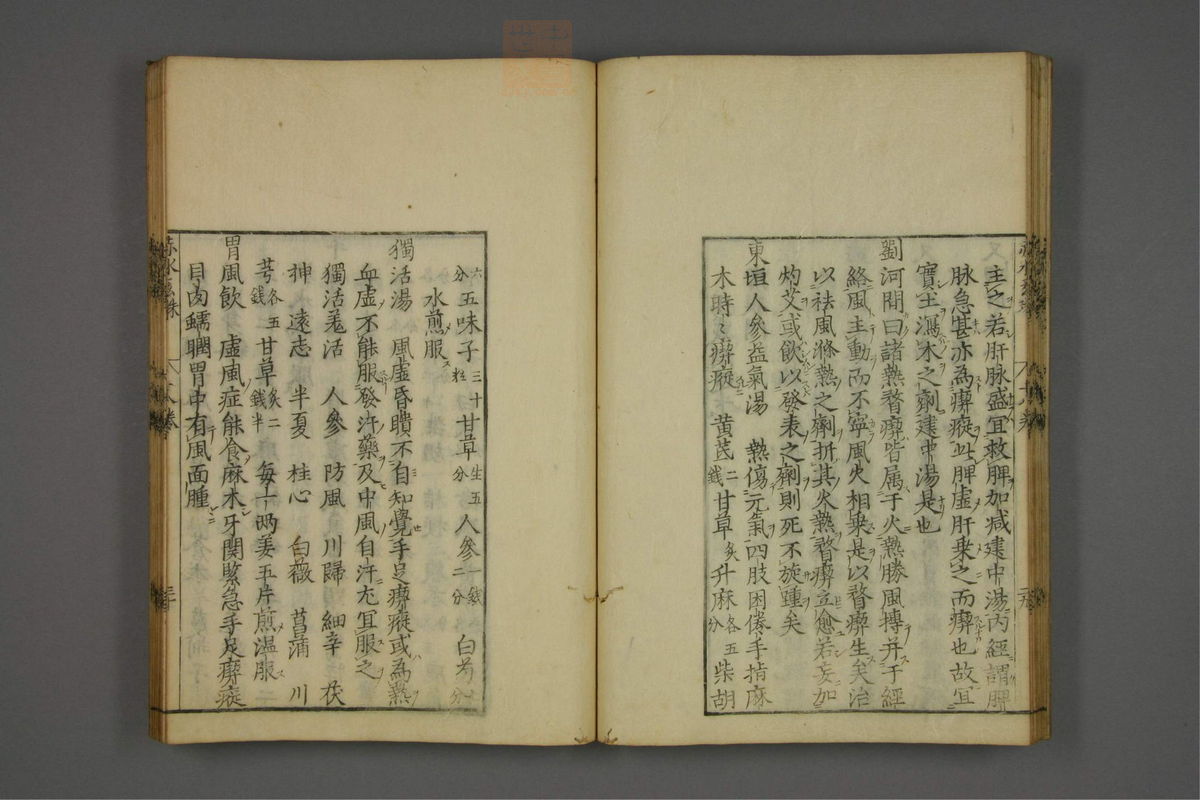 主之若肝脉盛宜救脾加减建中湯内經謂脾
脉急甚亦為瘈瘲此脾虛肝乗之而瘈也故宜
實土瀉木之劑建中湯是也
劉河間曰諸熱瞀瘈皆属于火熱勝風摶并于經
絡風主動而不寧風火相乗是以瞀瘈生矣治
以祛風滌熱之劑折其火熱瞀瘈立愈若妄加
灼艾或飲以發表之劑則死不旋踵矣
東垣人參益氣湯 熱傷元氣四肢困倦手指麻
木時〻瘈瘲 黄芪二錢甘草炙升麻各五分柴胡
六分五味子三十粒甘草生五分人參一錢二分白芍
水煎服
獨活湯 風虛昏瞶不自知覺手足瘈瘲或為熱
血虛不能服發汗藥及中風自汗尤宜服之
獨活羌活 人參 防風 川歸 細辛 茯
神 遠志 半夏 桂心 白薇 菖蒲 川
芎各五錢甘草炙二錢半 每一兩姜五片煎温服
胃風飲 虛風症能食麻木牙関緊急手足瘈瘲
目肉蠕瞤胃中有風面腫